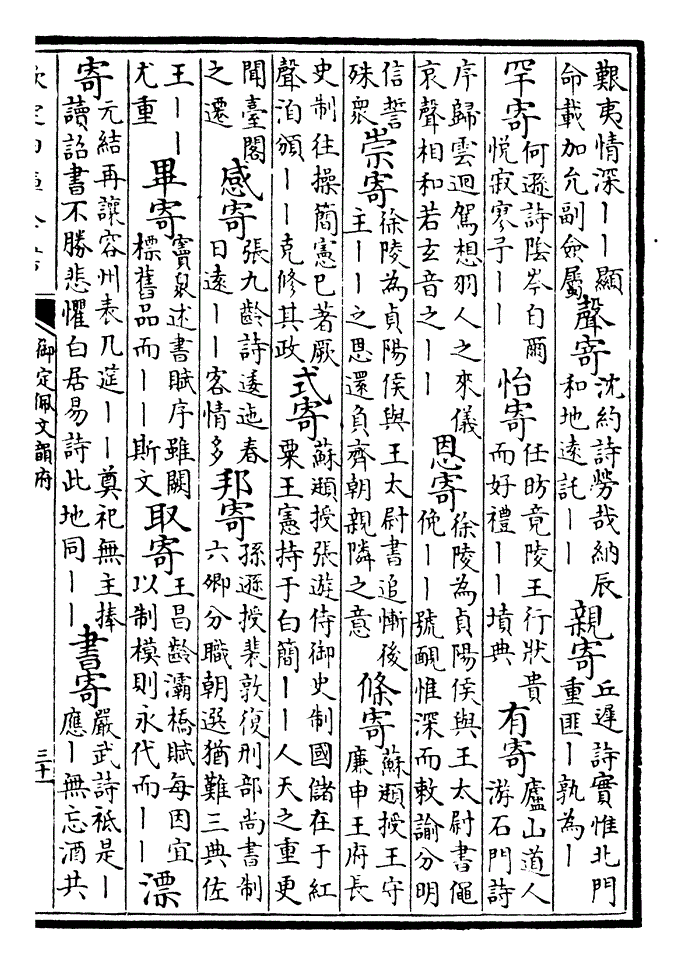 艱夷情深——顯
命載加允副僉屬
聲寄
沈約詩勞哉納辰
和地遠託——
親寄
丘遲詩實惟北門
重匪—孰為—
罕寄
何遜詩陰岑自爾
悅寂寥予——
怡寄
任昉竟陵王行狀貴
而好禮——墳典
有寄
廬山道人
游石門詩
序歸雲迴駕想羽人之來儀
哀聲相和若玄音之——
恩寄
徐陵為貞陽侯與王太尉書僶
俛——號靦惟深而敕諭分明
信誓
殊衆
崇寄
徐陵為貞陽侯與王太尉書追慚後
主——之恩還負齊朝親隣之意
條寄
蘇頲授王守
廉申王府長
史制往操簡憲已著厥
聲洎頒——克修其政
式寄
蘇頲授張遊侍御史制國儲在于紅
粟王憲持于白簡——人天之重更
聞臺閣
之遷
感寄
張九齡詩逶迤春
日遠——客情多
邦寄
孫逖授裴敦復刑部尚書制
六卿分職朝選猶難三典佐
王——
尤重
畢寄
竇臮述書賦序雖闕
標舊品而——斯文
取寄
王昌齡灞橋賦每因宜
以制模則永代而——
漂
寄
元結再讓容州表几筵——奠祀無主捧
讀詔書不勝悲懼白居易詩此地同——
書寄
嚴武詩祗是—
應—無忘酒共
欽定四庫全書
御定佩文韻府
三十一